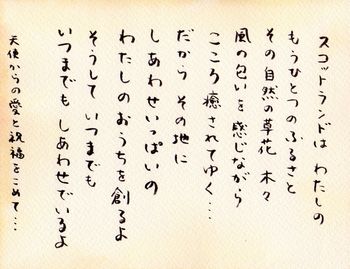 スコットランドは わたしの
もうひとつのふるさと
その自然の草花 木々
風の匂いを感じながら
こころ癒されてゆく…
だから その地に
しあわせいっぱいの
わたしのおうちを創るよ
そうして いつまでも
いつまでも しあわせでいるよ
天使からの愛と祝福をこめて…